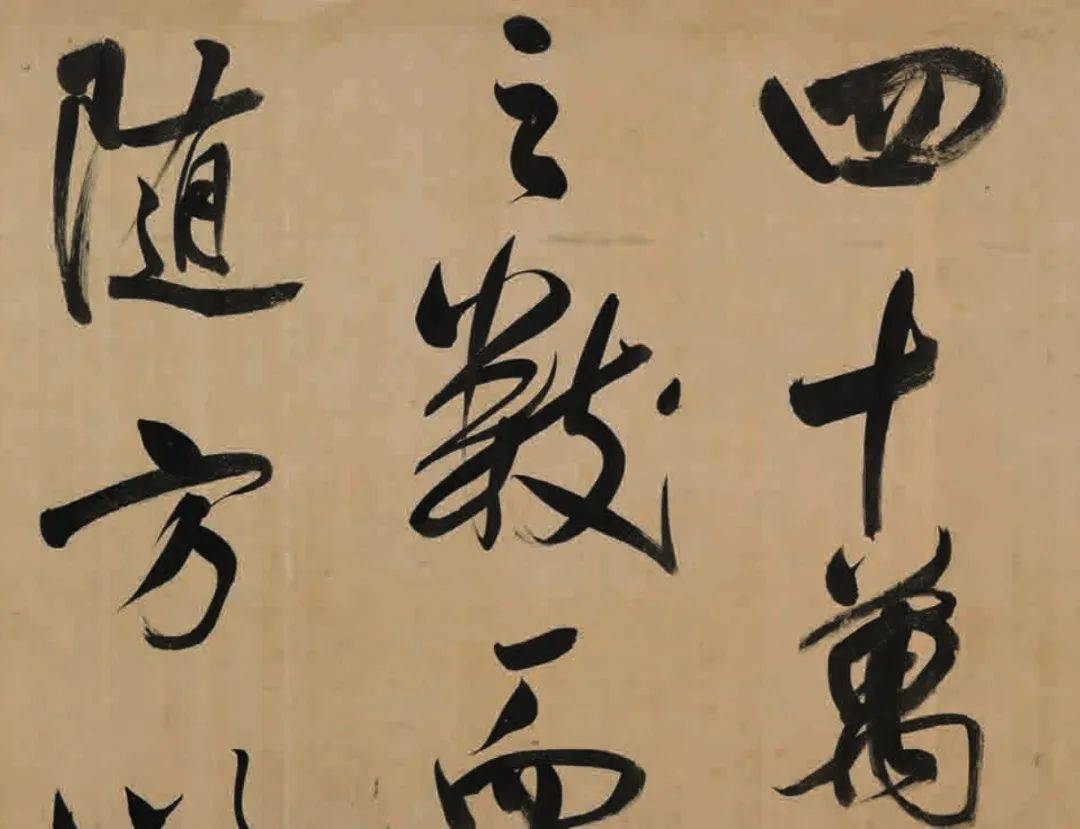 四十萬
之數而
随方